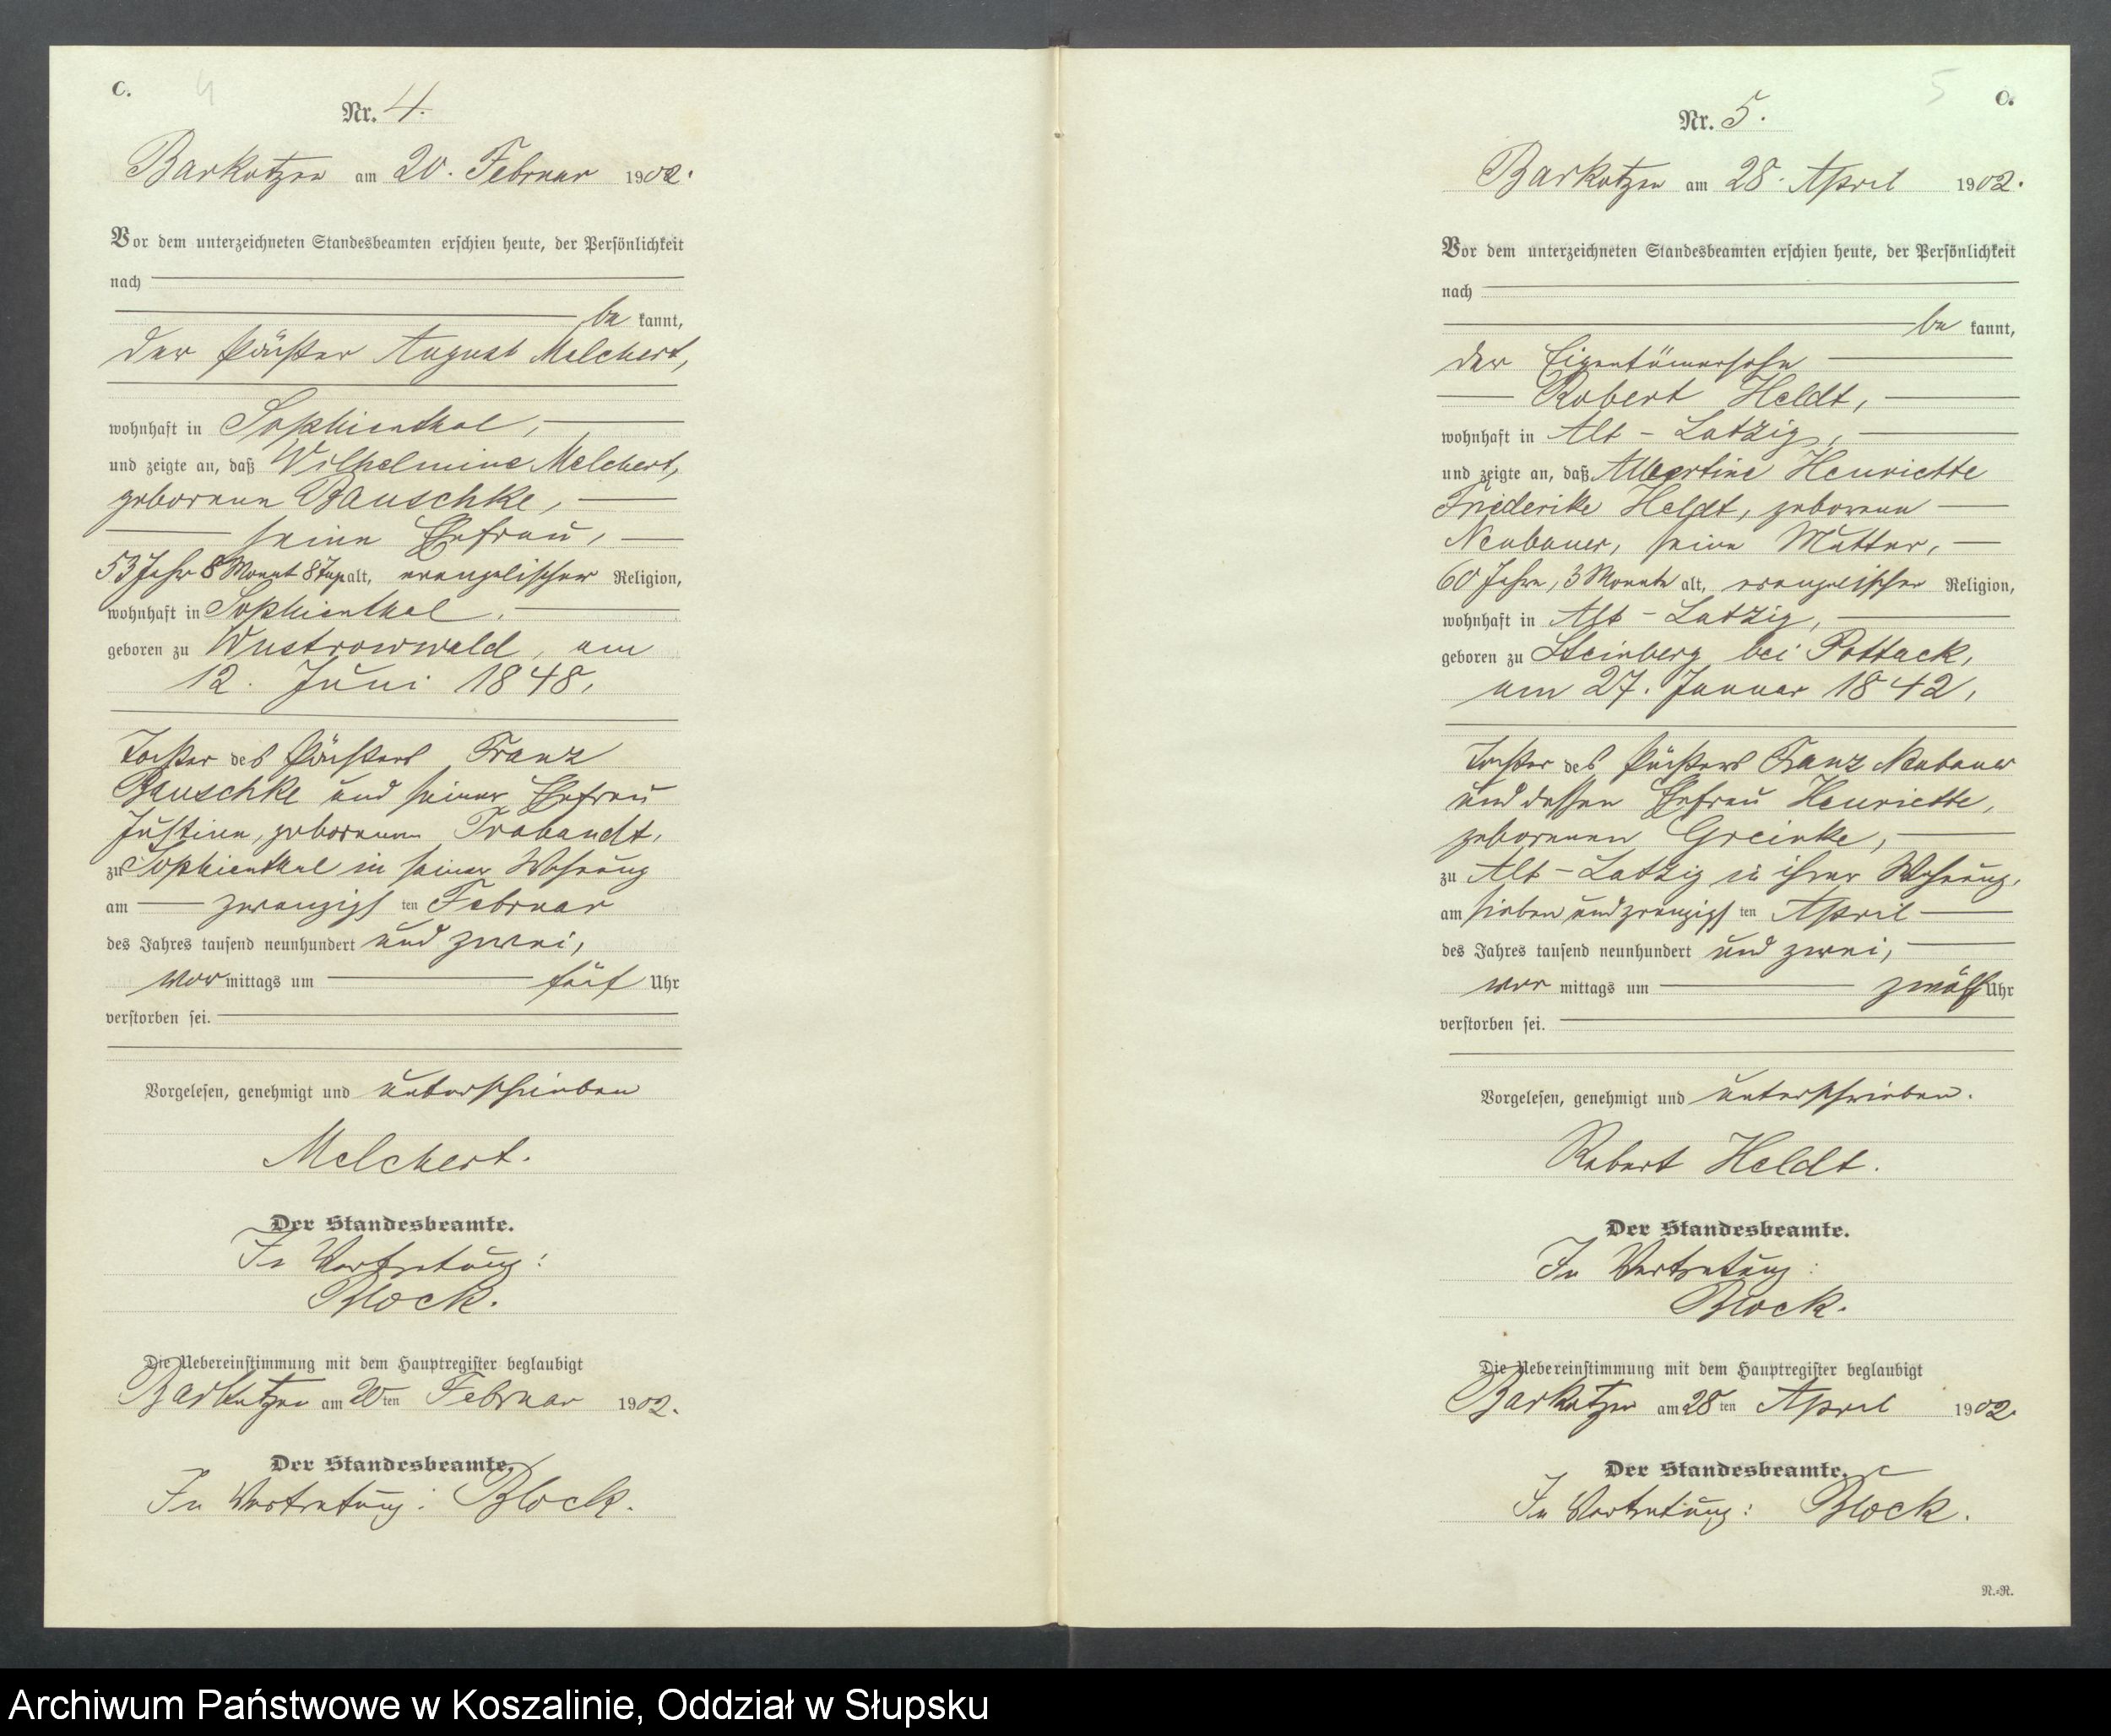 C. 4
Nr. 4.
Barkotzen am 20. Februar 1902.
Vor dem unterzeichneten Standesbeamten erschien heute, der Persönlichkeit
nach
be kannt,
der Pächter August Melchert,
wohnhaft in Sophienthal,
und zeigte an, daß Wilhelmine Melchert,
geborene Bauschke,
seine Ehefrau,
53 Jahr 8 Monat 8 Tage alt, evangelischer Religion,
wohnhaft in Sophienthal,
geboren zu Wustrowwald, am
12. Juni 1848,
Tochter des Pächters Franz
Bauschke und seiner Ehefrau
Justine, geborenen Trabandt,
zu Sophienthal in seiner Wohnung
am zwanzigsten Februar
des Jahres tausend neunhundert und zwei,
vor mittags um fünf Uhr
verstorben sei.
Vorgelesen, genehmigt und unterschrieben
Melchert.
Der Standesbeamte.
In Vertretung:
Block.
Die Uebereinstimmung mit dem Hauptregister beglaubigt
Barkotzen am 20ten Februar 1902.
Der Standesbeamte.
In Vertretung: Block.
5 C.
Nr. 5.
Barkotzen am 28. April 1902.
Vor dem unterzeichneten Standesbeamten erschien heute, der Persönlichkeit
nach
be kannt,
der Eigentümersohn
Robert Heldt,
wohnhaft in Alt-Latzig,
und zeigte an, daß Albertine Henriette
Friederike Heldt, geborene
Neubauer, seine Mutter,
60 Jahre, 3 Monate alt, evangelischer Religion,
wohnhaft in Alt-Latzig,
geboren zu Steinberg bei Pottack,
am 27. Januar 1842,
Tochter des Pächters Franz Neubauer
und dessen Ehefrau Henriette,
geborenen Greinke,
zu Alt-Latzig in ihrer Wohnung,
am sieben und zwanzigsten April
des Jahres tausend neunhundert und zwei,
vor mittags um zwölf Uhr
verstorben sei.
Vorgelesen, genehmigt und unterschrieben.
Robert Heldt.
Der Standesbeamte.
In Vertretung:
Block.
Die Uebereinstimmung mit dem Hauptregister beglaubigt
Barkotzen am 28ten April 1902.
Der Standesbeamte.
In Vertretung: Block.
N.-R.
Archiwum Państwowe w Koszalinie, Oddział w Słupsku